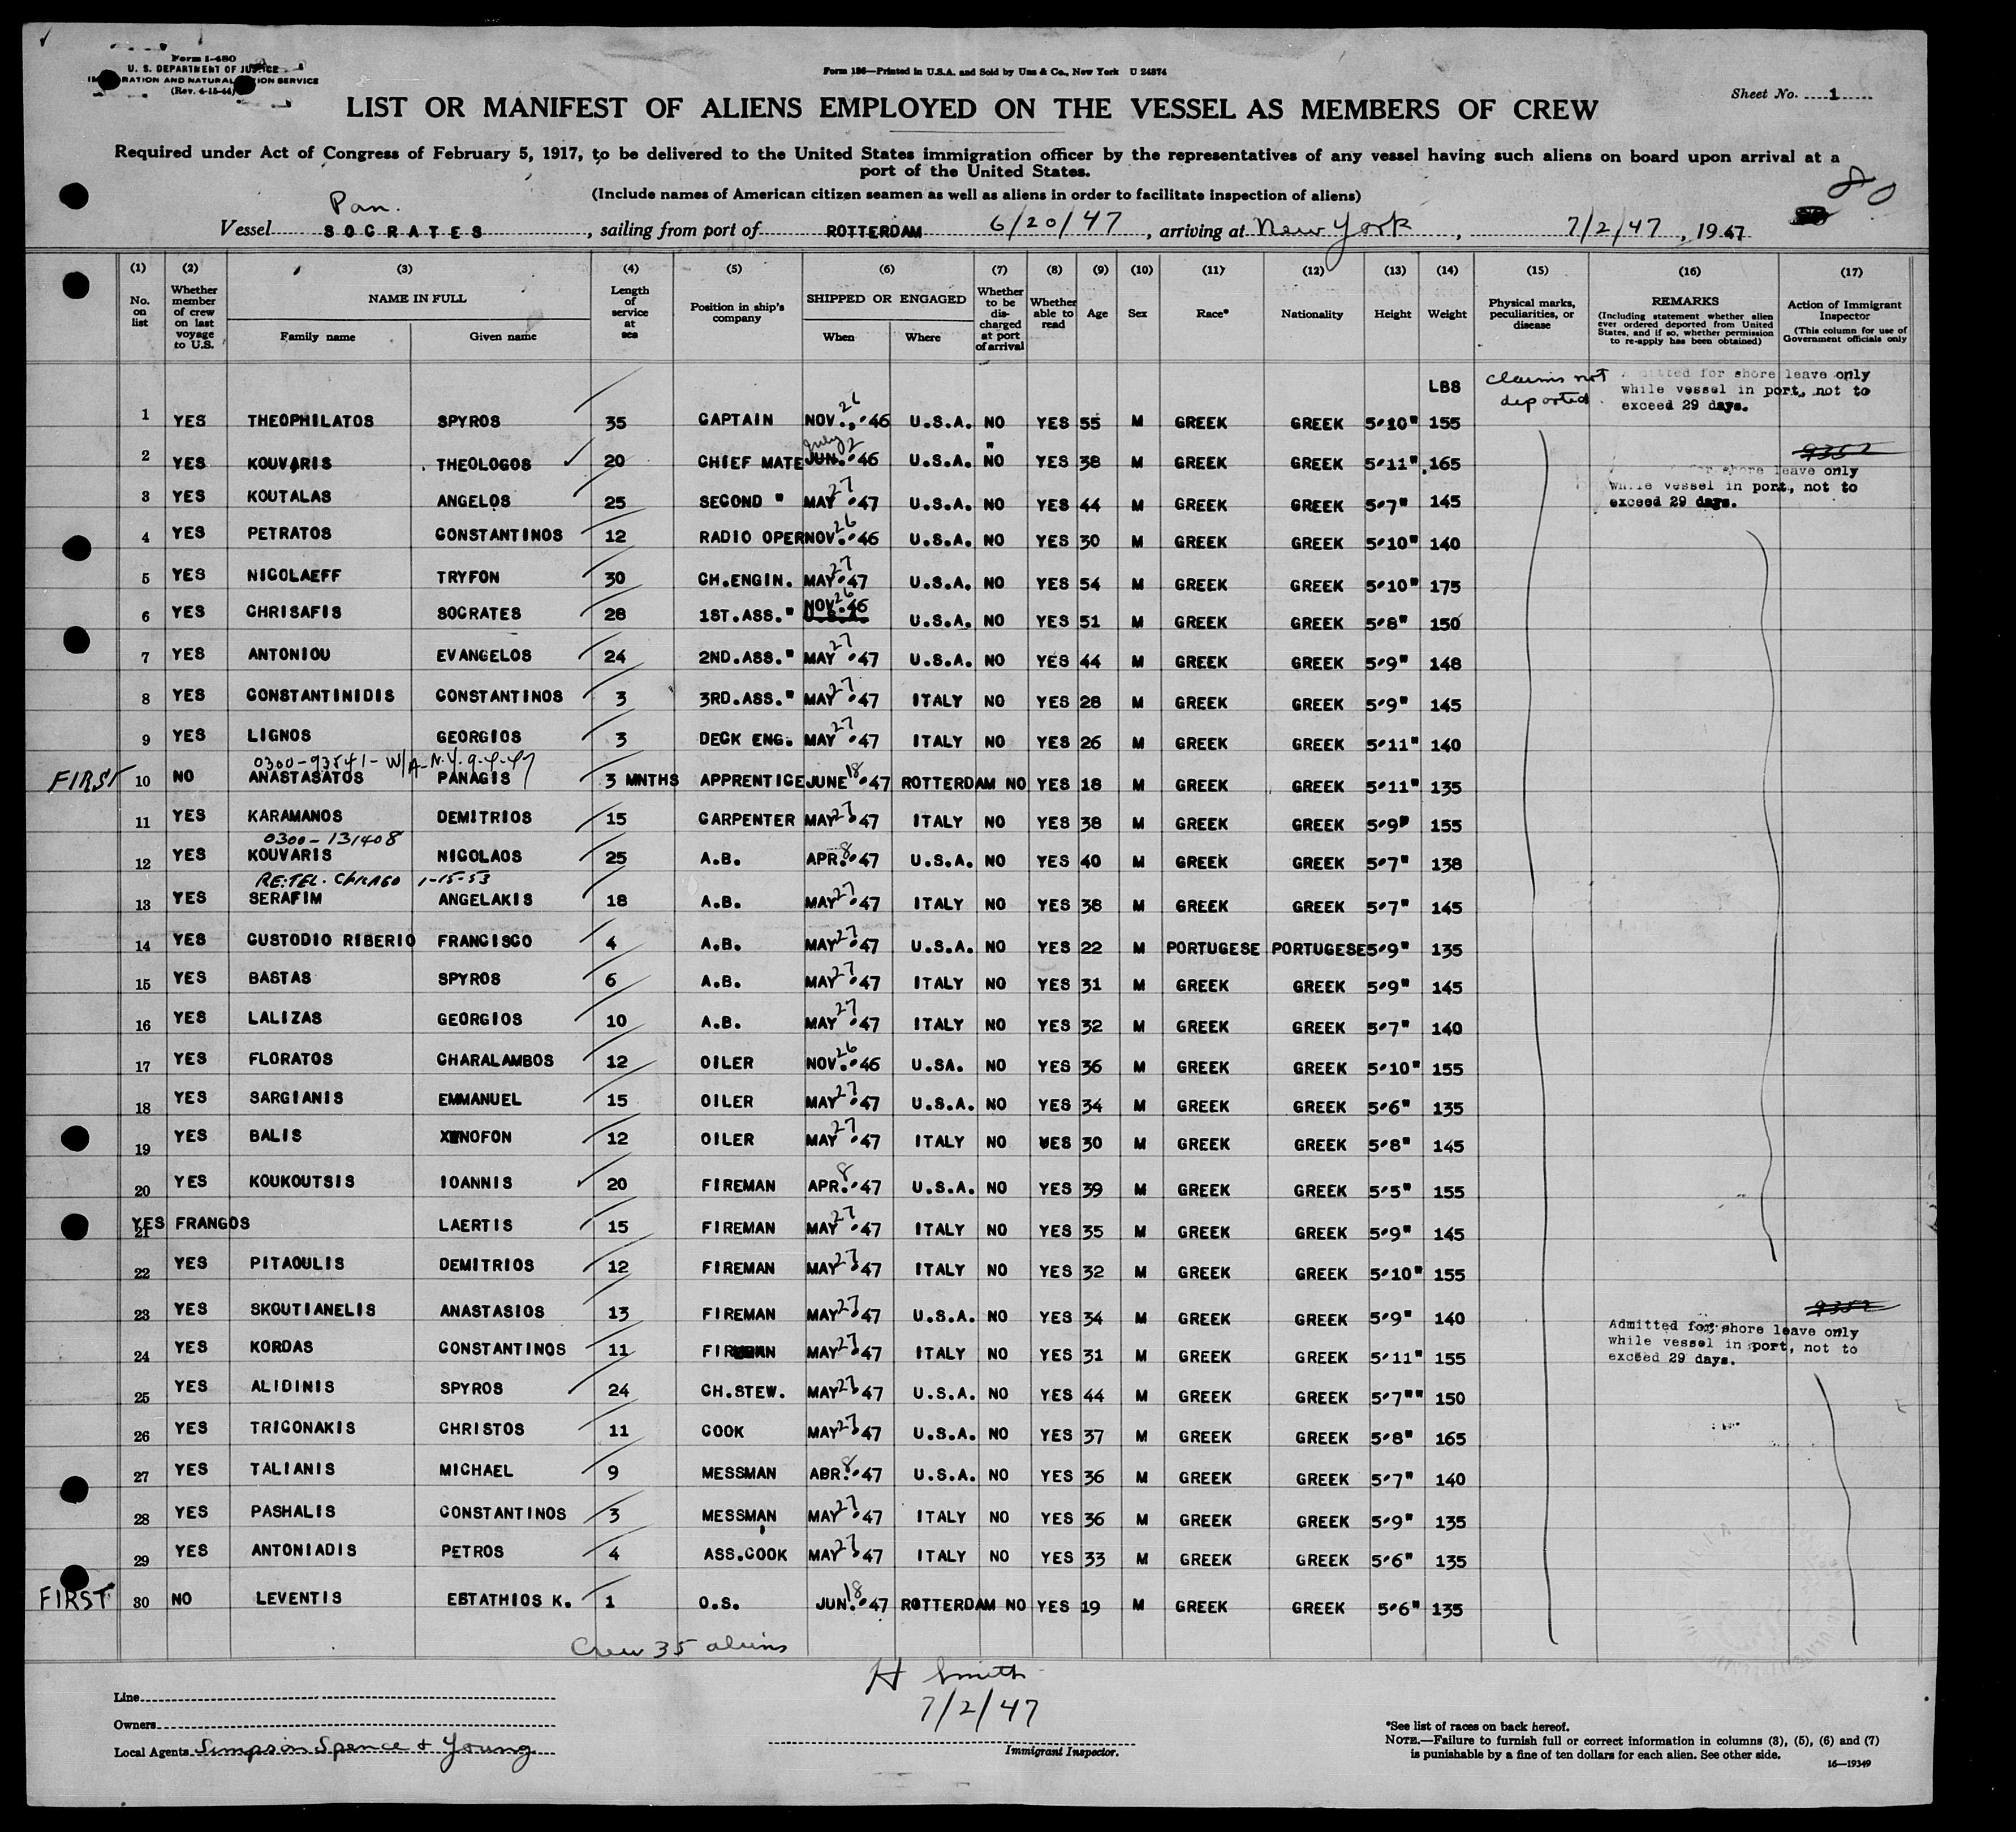 Form I-480
U. S. DEPARTMENT OF JUSTICE
IMMIGRATION AND NATURALIZATION SERVICE
(Rev. 4-15-44)
Form 186—Printed in U.S.A. and Sold by Unz & Co., New York U 24874
Sheet No. 1
LIST OR MANIFEST OF ALIENS EMPLOYED ON THE VESSEL AS MEMBERS OF CREW
Required under Act of Congress of February 5, 1917, to be delivered to the United States immigration officer by the representatives of any vessel having such aliens on board upon arrival at a
port of the United States.
(Include names of American citizen seamen as well as aliens in order to facilitate inspection of aliens)
80
Pan.
Vessel SOCRATES, sailing from port of ROTTERDAM 6/20/47, arriving at New York, 7/2/47, 1947
(1) (2) (3) (4) (5) (6) (7) (8) (9) (10) (11) (12) (13) (14) (15) (16) (17)
No. on list
Whether member of crew on last voyage to U.S.
NAME IN FULL
Family name Given name
Length of service at sea
Position in ship's company
SHIPPED OR ENGAGED
When Where
Whether to be discharged at port of arrival
Whether able to read
Age Sex Race* Nationality Height Weight
Physical marks, peculiarities, or disease
REMARKS
(Including statement whether alien ever ordered deported from United States, and if so, whether permission to re-apply has been obtained)
Action of Immigrant Inspector
(This column for use of Government officials only
LBS
claims not deported.
Admitted for shore leave only
while vessel in port, not to
exceed 29 days.
1 YES THEOPHILATOS SPYROS 35 CAPTAIN NOV. 26 '46 U.S.A. NO YES 55 M GREEK GREEK 5'10" 155
2 YES KOUVARIS THEOLOGOS 20 CHIEF MATE JUN. July 2 '46 U.S.A. " NO YES 38 M GREEK GREEK 5'11" 165
9352
for shore leave only
while vessel in port, not to
exceed 29 days.
3 YES KOUTALAS ANGELOS 25 SECOND " MAY 27 '47 U.S.A. NO YES 44 M GREEK GREEK 5'7" 145
4 YES PETRATOS CONSTANTINOS 12 RADIO OPER NOV. 26 '46 U.S.A. NO YES 30 M GREEK GREEK 5'10" 140
5 YES NICOLAEFF TRYFON 30 CH.ENGIN. MAY 27 '47 U.S.A. NO YES 54 M GREEK GREEK 5'10" 175
6 YES CHRISAFIS SOCRATES 28 1ST.ASS." NOV. 26 '46 U.S.A. U.S.A. NO YES 51 M GREEK GREEK 5'8" 150
7 YES ANTONIOU EVANGELOS 24 2ND.ASS." MAY 27 '47 U.S.A. NO YES 44 M GREEK GREEK 5'9" 148
8 YES CONSTANTINIDIS CONSTANTINOS 3 3RD.ASS." MAY 27 '47 ITALY NO YES 28 M GREEK GREEK 5'9" 145
9 YES LIGNOS GEORGIOS 3 DECK ENG. MAY 27 '47 ITALY NO YES 26 M GREEK GREEK 5'11" 140
0300-93841- W/A-N.Y. 9-4-47
FIRST 10 NO ANASTASATOS PANAGIS 3 MNTHS APPRENTICE JUNE 18 '47 ROTTERDAM NO YES 18 M GREEK GREEK 5'11" 135
11 YES KARAMANOS DEMITRIOS 15 CARPENTER MAY 27 '47 ITALY NO YES 38 M GREEK GREEK 5'9" 155
0300-131408
12 YES KOUVARIS NICOLAOS 25 A.B. APR. 8 '47 U.S.A. NO YES 40 M GREEK GREEK 5'7" 138
RE:TEL. CHICAGO 1-15-53
13 YES SERAFIM ANGELAKIS 18 A.B. MAY 27 '47 ITALY NO YES 38 M GREEK GREEK 5'7" 145
14 YES CUSTODIO RIBERIO FRANCISCO 4 A.B. MAY 27 '47 U.S.A. NO YES 22 M PORTUGESE PORTUGESE 5'9" 135
15 YES BASTAS SPYROS 6 A.B. MAY 27 '47 ITALY NO YES 31 M GREEK GREEK 5'9" 145
16 YES LALIZAS GEORGIOS 10 A.B. MAY 27 '47 ITALY NO YES 32 M GREEK GREEK 5'7" 140
17 YES FLORATOS CHARALAMBOS 12 OILER NOV. 26 '46 U.SA. NO YES 36 M GREEK GREEK 5'10" 155
18 YES SARGIANIS EMMANUEL 15 OILER MAY 27 '47 U.S.A. NO YES 34 M GREEK GREEK 5'6" 135
19 YES BALIS XENOFON 12 OILER MAY 27 '47 ITALY NO YES 30 M GREEK GREEK 5'8" 145
20 YES KOUKOUTSIS IOANNIS 20 FIREMAN APR. 8 '47 U.S.A. NO YES 39 M GREEK GREEK 5'5" 155
21 YES FRANGOS LAERTIS 15 FIREMAN MAY 27 '47 ITALY NO YES 35 M GREEK GREEK 5'9" 145
22 YES PITAOULIS DEMITRIOS 12 FIREMAN MAY 27 '47 ITALY NO YES 32 M GREEK GREEK 5'10" 155
23 YES SKOUTIANELIS ANASTASIOS 13 FIREMAN MAY 27 '47 U.S.A. NO YES 34 M GREEK GREEK 5'9" 140
9352
Admitted for shore leave only
while vessel in port, not to
exceed 29 days.
24 YES KORDAS CONSTANTINOS 11 FIREMAN MAY 27 '47 ITALY NO YES 31 M GREEK GREEK 5'11" 155
25 YES ALIDINIS SPYROS 24 CH.STEW. MAY 27 '47 U.S.A. NO YES 44 M GREEK GREEK 5'7"" 150
26 YES TRIGONAKIS CHRISTOS 11 COOK MAY 27 '47 U.S.A. NO YES 37 M GREEK GREEK 5'8" 165
27 YES TALIANIS MICHAEL 9 MESSMAN ABR. 8 '47 U.S.A. NO YES 36 M GREEK GREEK 5'7" 140
28 YES PASHALIS CONSTANTINOS 3 MESSMAN MAY 27 '47 ITALY NO YES 36 M GREEK GREEK 5'9" 135
29 YES ANTONIADIS PETROS 4 ASS.COOK MAY 27 '47 ITALY NO YES 33 M GREEK GREEK 5'6" 135
FIRST 30 NO LEVENTIS EBTATHIOS K. 1 O.S. JUN. 18 '47 ROTTERDAM NO YES 19 M GREEK GREEK 5'6" 135
Crew 35 aliens
H Smith
7/2/47
Line
Owners
Local Agents Simpson Spence & Young
Immigrant Inspector.
*See list of races on back hereof.
NOTE.—Failure to furnish full or correct information in columns (3), (5), (6) and (7)
is punishable by a fine of ten dollars for each alien. See other side.
16—19349